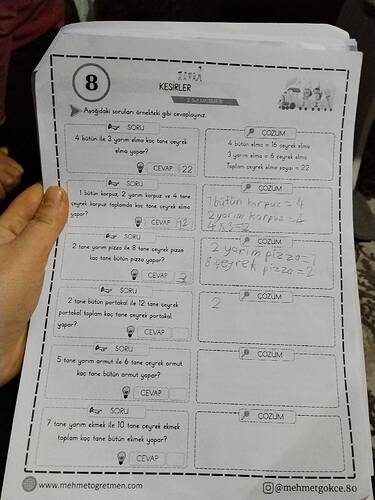 8
KESİRLER
2. Sınıf MATEMATİK
Aşağıdaki soruları örnekteki gibi cevaplayınız.
SORU
4 bütün ile 3 yarım elma kaç tane çeyrek
elma yapar?
CEVAP 22
ÇÖZÜM
4 bütün elma = 16 çeyrek elma
3 yarım elma = 6 çeyrek elma
Toplam çeyrek elma sayısı = 22
SORU
1 bütün karpuz, 2 yarım karpuz ve 4 tane
çeyrek karpuz toplamda kaç tane çeyrek elma
yapar?
CEVAP 12
ÇÖZÜM
1 bütün karpuz = 4
2 yarım karpuz = 4
SORU
2 tane yarım pizza ile 8 tane çeyrek pizza
kaç tane bütün pizza yapar?
CEVAP 3
ÇÖZÜM
2 yarım pizza = 1
8 çeyrek pizza = 2
SORU
2 tane bütün portakal ile 12 tane çeyrek
portakal toplam kaç tane çeyrek portakal
yapar?
CEVAP
ÇÖZÜM
2
SORU
5 tane yarım armut ile 6 tane çeyrek armut
kaç tane bütün armut yapar?
CEVAP
ÇÖZÜM
SORU
7 tane yarım ekmek ile 10 tane çeyrek ekmek
toplam kaç tane bütün ekmek yapar?
CEVAP
ÇÖZÜM
www.mehmetogretmen.com
@mehmetgokce.80